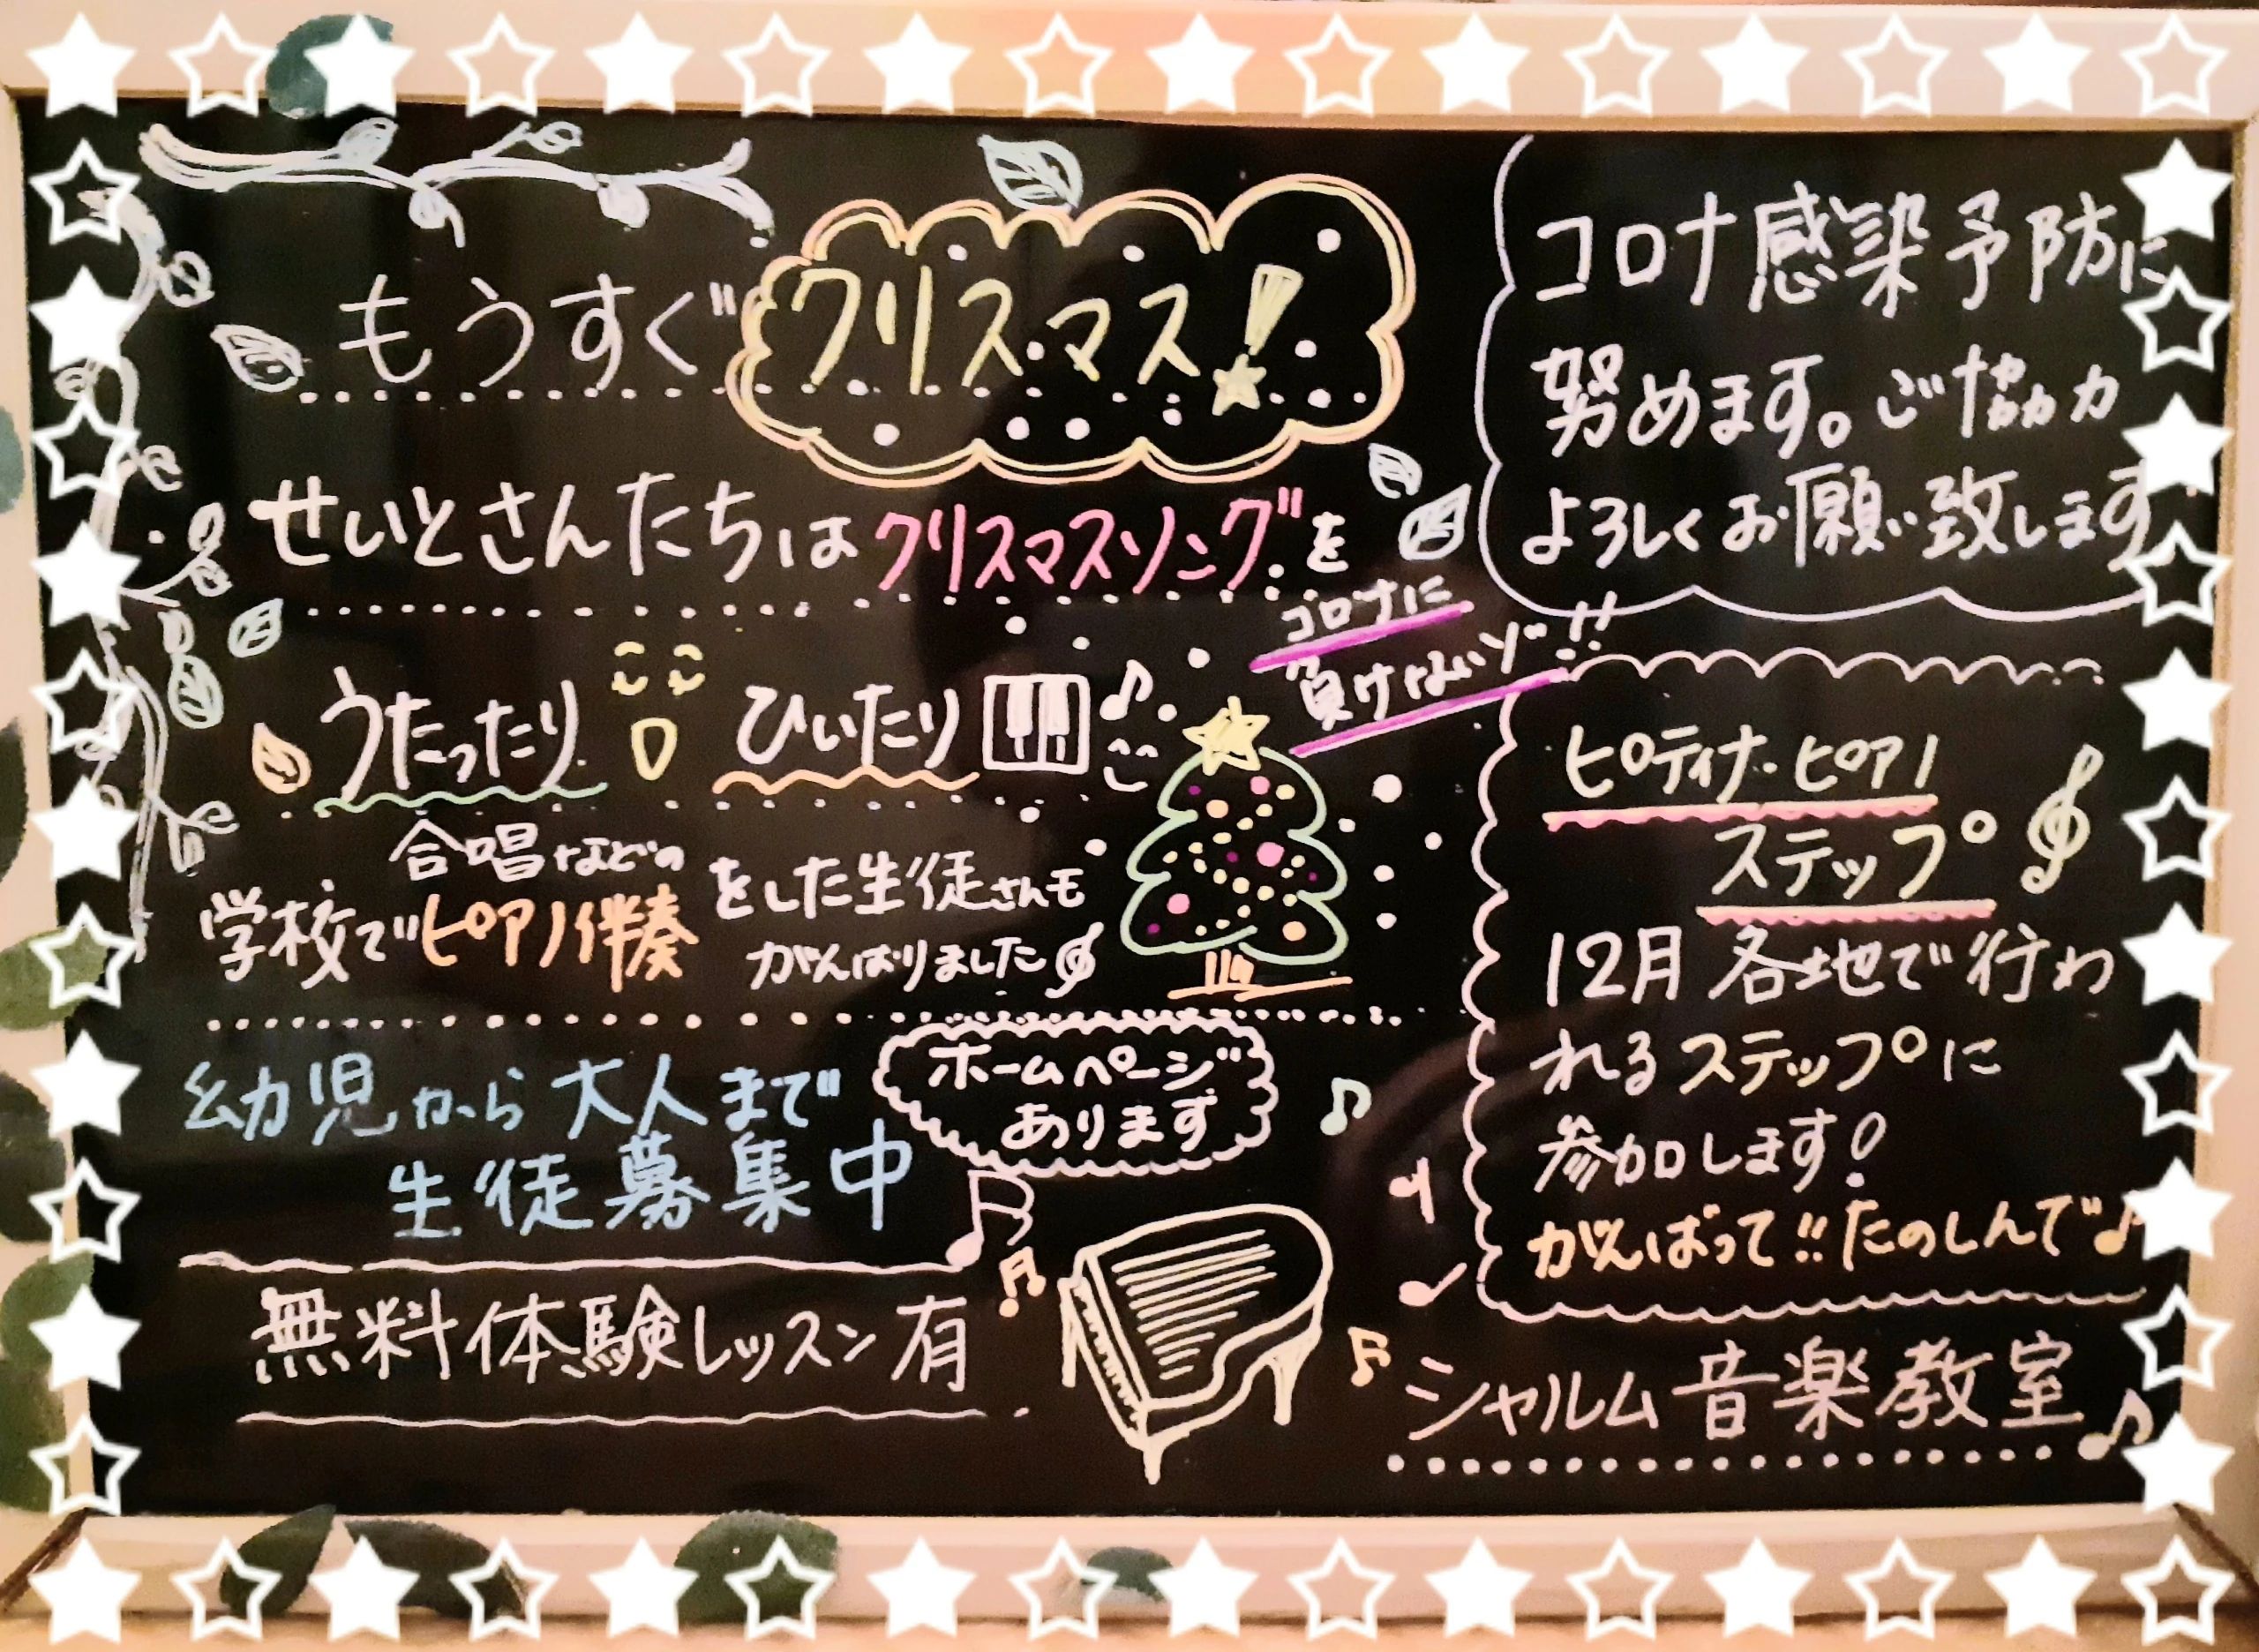 もうすぐクリスマス！
せいとさんたちはクリスマスソングを
うたったり ひいたり
コロナに
負けないゾ!!
合唱などの
学校でピアノ伴奏をした生徒さんも
がんばりました
幼児から大人まで
生徒募集中
ホームページ
あります
無料体験レッスン有
コロナ感染予防に
努めます。ご協力
よろしくお願い致します
ピティナ・ピアノ
ステップ
12月各地で行わ
れるステップに
参加します!
がんばって!!たのしんで♪
シャルム音楽教室